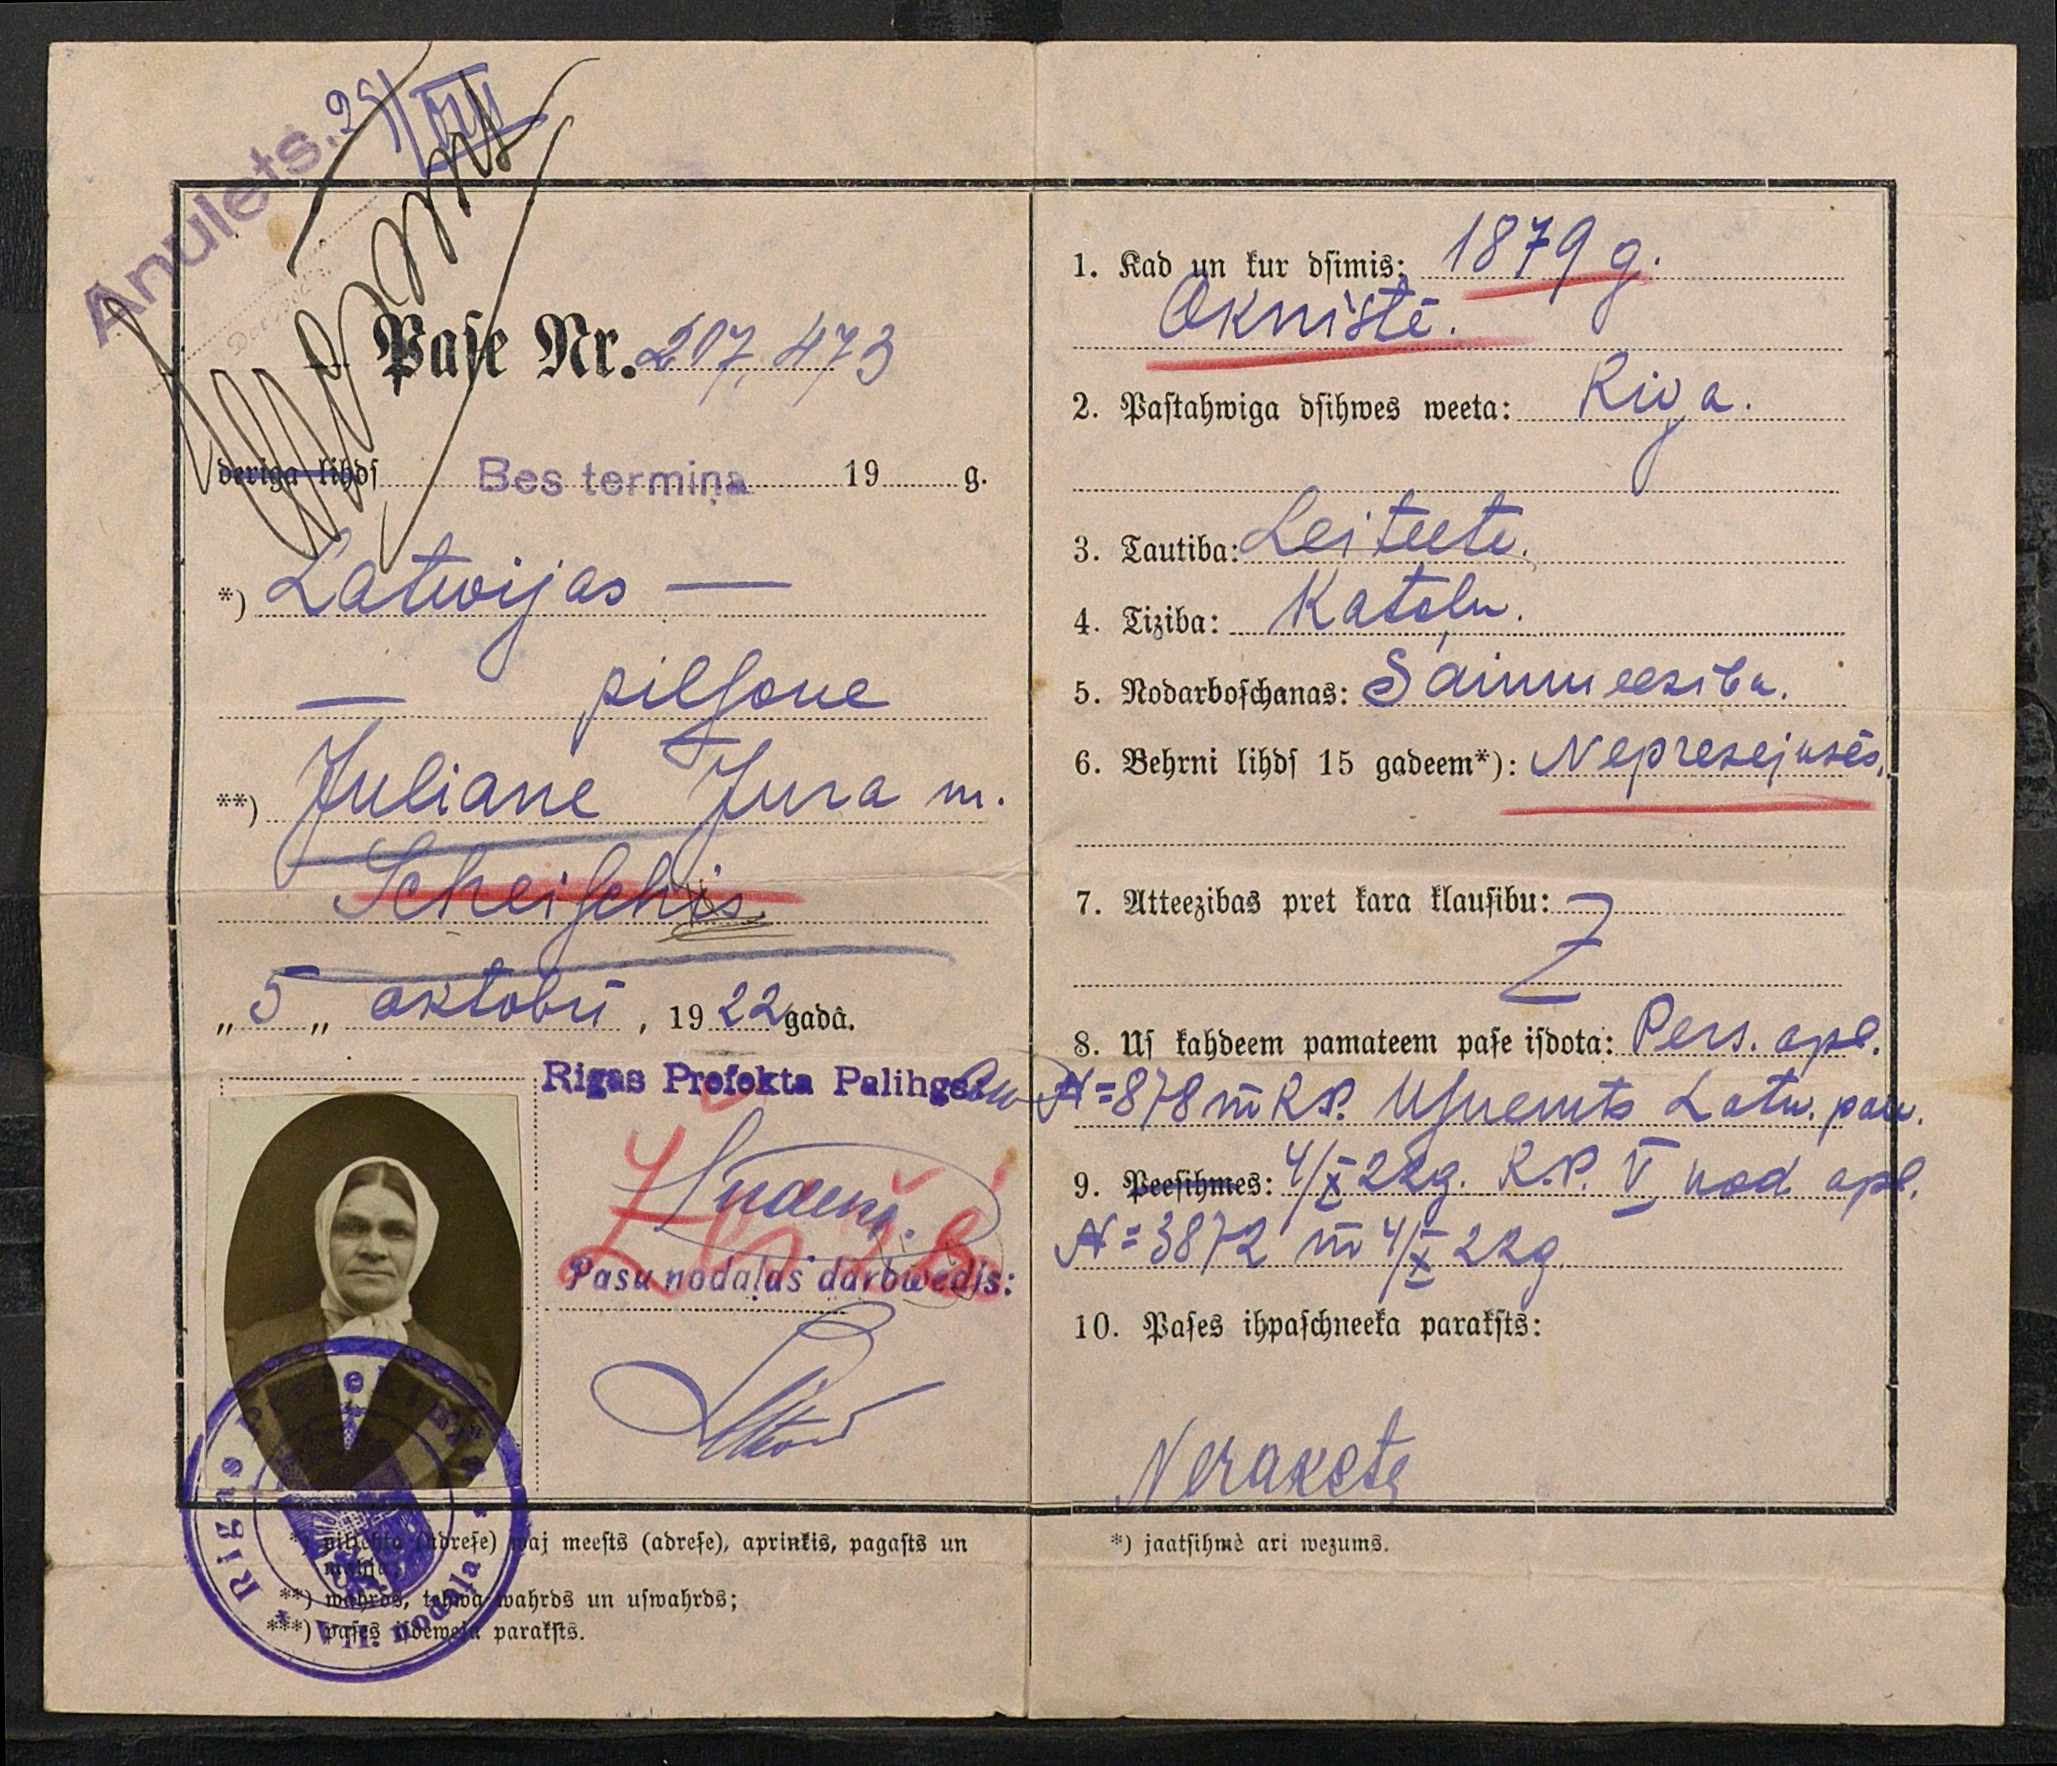 Anulets. 29/VIII
Pase Nr. 207,473
deriga lihdſ Bes termiņa 19 g.
*) Latwijas —
— pilſone
**) Juliane Jura m.
Scheiſchis
„5„ oktobrī, 1922 gadâ.
Rigas Prefekta Palihgs:
Pasu nodaļas darbwedis:
Rigas Prefektura
VII. nodaļa
*) pilſehta (adreſe) waj meeſts (adreſe), aprinkis, pagaſts un
mahja;
**) wahrds, tehwa wahrds un uſwahrds;
***) paſes iſdeweja parakſts.
1. Kad un kur dſimis: 1879 g.
Oknistē.
2. Paſtahwiga dſihwes weeta: Riga.
3. Tautiba: Leiteete.
4. Tiziba: Katoļu.
5. Nodarboſchanas: Saimneeziba.
6. Behrni lihdſ 15 gadeem*): Neprezejusēs.
7. Atteezibas pret kara klauſibu: Z
8. Uſ kahdeem pamateem paſe iſdota: Pers. apl.
N=878 no R.P. Uſņemts Latw. paw.
9. Peeſihmes: 4/X 22g. R.P. V nod. apl.
N=3872 no 4/X 22g.
10. Paſes ihpaſchneeka parakſts:
Nerakste
*) jaatſihmè ari wezums.